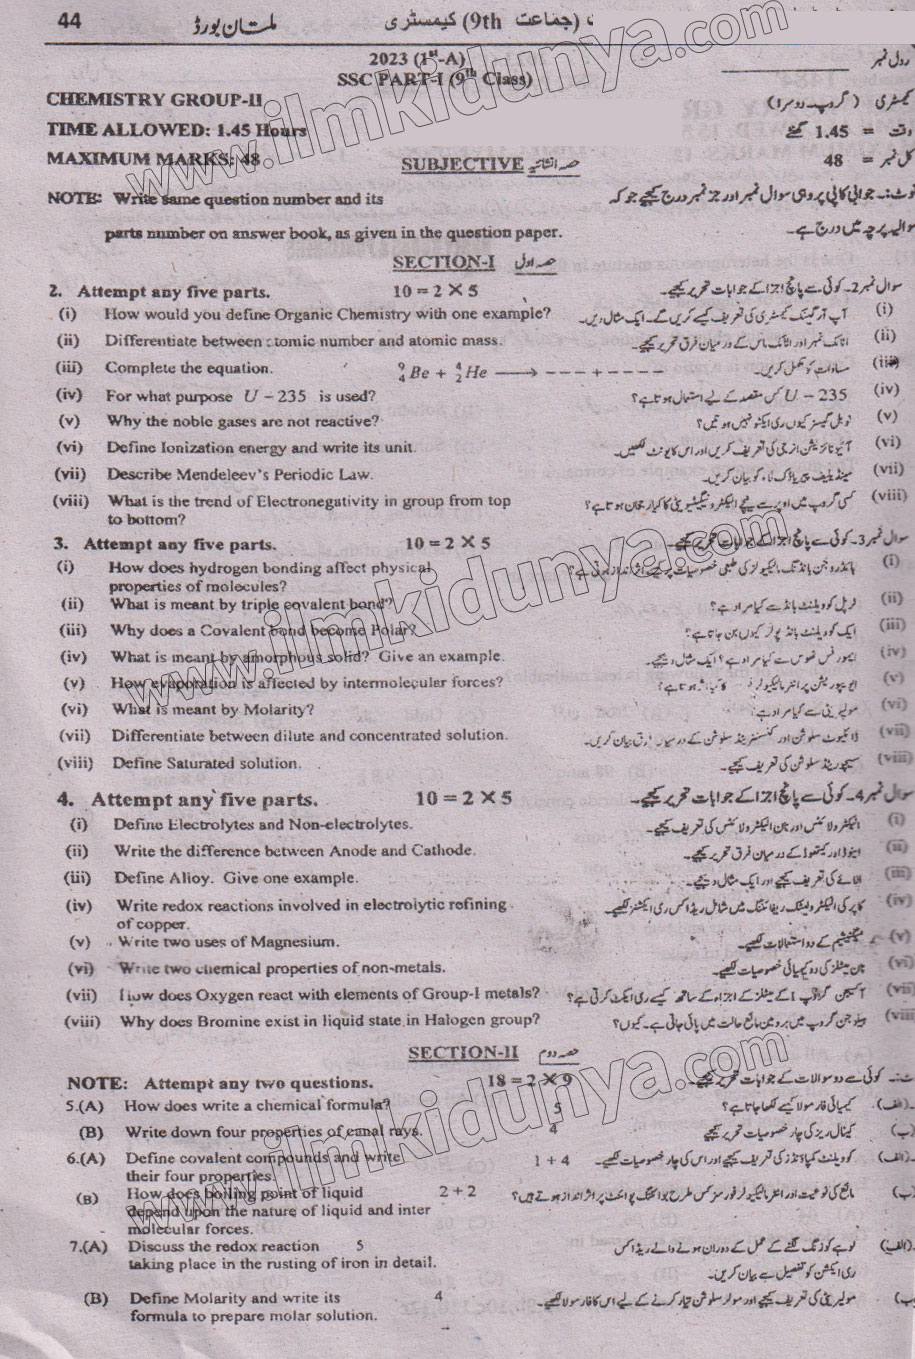 44 ملتان بورڈ (جماعت 9th) کیمسٹری
2023 (1st-A)
رول نمبر
SSC PART-I (9th Class)
CHEMISTRY GROUP-II کیمسٹری (گروپ دوسرا)
TIME ALLOWED: 1.45 Hours وقت = 1.45 گھنٹے
MAXIMUM MARKS: 48 SUBJECTIVE حصہ انشائیہ کل نمبر = 48
NOTE: Write same question number and its نوٹ:۔ جوابی کاپی پر وہی سوال نمبر اور جز نمبر درج کیجیے جو کہ
parts number on answer book, as given in the question paper. سوالیہ پرچہ میں درج ہے۔
SECTION-I حصہ اول
2. Attempt any five parts. 10 = 2 × 5 سوال نمبر2۔ کوئی سے پانچ اجزا کے جوابات تحریر کیجیے۔
(i) How would you define Organic Chemistry with one example? آپ آرگینک کیمسٹری کی تعریف کیسے کریں گے۔ ایک مثال دیں۔ (i)
(ii) Differentiate between atomic number and atomic mass. اٹامک نمبر اور اٹامک ماس کے درمیان فرق تحریر کیجیے۔ (ii)
(iii) Complete the equation. ⁹₄Be + ⁴₂He ⟶ --- + ---- مساوات کو مکمل کریں۔ (iii)
(iv) For what purpose U – 235 is used? U – 235 کس مقصد کے لیے استعمال ہوتا ہے؟ (iv)
(v) Why the noble gases are not reactive? نوبل گیسز کیوں ری ایکٹو نہیں ہوتیں؟ (v)
(vi) Define Ionization energy and write its unit. آئیونائزیشن انرجی کی تعریف کریں اور اس کا یونٹ لکھیں۔ (vi)
(vii) Describe Mendeleev's Periodic Law. مینڈیلیف پیریاڈک لاء کو بیان کریں۔ (vii)
(viii) What is the trend of Electronegativity in group from top کسی گروپ میں اوپر سے نیچے الیکٹرونیگیٹیویٹی کا کیا رجحان ہوتا ہے؟ (viii)
to bottom?
3. Attempt any five parts. 10 = 2 × 5 سوال نمبر3۔ کوئی سے پانچ اجزا کے جوابات تحریر کیجیے۔
(i) How does hydrogen bonding affect physical ہائڈروجن بانڈنگ مالیکیولز کی طبعی خصوصیات پر کیسے اثر انداز ہوتی ہے؟ (i)
properties of molecules?
(ii) What is meant by triple covalent bond? ٹرپل کوویلنٹ بانڈ سے کیا مراد ہے؟ (ii)
(iii) Why does a Covalent bond become Polar? ایک کوویلنٹ بانڈ پولر کیوں بن جاتا ہے؟ (iii)
(iv) What is meant by amorphous solid? Give an example. ایمورفس ٹھوس سے کیا مراد ہے؟ ایک مثال دیجیے۔ (iv)
(v) How evaporation is affected by intermolecular forces? ایویپوریشن پر انٹر مالیکیولر کا کیا اثر ہوتا ہے؟ (v)
(vi) What is meant by Molarity? مولیریٹی سے کیا مراد ہے؟ (vi)
(vii) Differentiate between dilute and concentrated solution. ڈائلیوٹ سلوشن اور کنسنٹریٹڈ سلوشن کے درمیان فرق بیان کریں۔ (vii)
(viii) Define Saturated solution. سیچوریٹڈ سلوشن کی تعریف کیجیے۔ (viii)
4. Attempt any five parts. 10 = 2 × 5 سوال نمبر4۔ کوئی سے پانچ اجزا کے جوابات تحریر کیجیے۔
(i) Define Electrolytes and Non-electrolytes. الیکٹرولائٹس اور نان الیکٹرولائٹس کی تعریف کیجیے۔ (i)
(ii) Write the difference between Anode and Cathode. اینوڈ اور کیتھوڈ کے درمیان فرق تحریر کیجیے۔ (ii)
(iii) Define Alloy. Give one example. الائے کی تعریف کیجیے اور ایک مثال دیجیے۔ (iii)
(iv) Write redox reactions involved in electrolytic refining کاپر کی الیکٹرولیٹک ریفائننگ میں شامل ریڈاکس ری ایکشنز لکھیے۔ (iv)
of copper.
(v) Write two uses of Magnesium. میگنیشیم کے دو استعمالات لکھیے۔ (v)
(vi) Write two chemical properties of non-metals. نان میٹلز کی دو کیمیائی خصوصیات لکھیے۔ (vi)
(vii) How does Oxygen react with elements of Group-I metals? آکسیجن گروپ I کے میٹلز کے اجزاء کے ساتھ کیسے ری ایکٹ کرتی ہے؟ (vii)
(viii) Why does Bromine exist in liquid state in Halogen group? ہیلوجن گروپ میں برومین مائع حالت میں پائی جاتی ہے۔ کیوں؟ (viii)
SECTION-II حصہ دوم
NOTE: Attempt any two questions. 18 = 2 × 9 کوئی سے دو سوالات کے جوابات تحریر کیجیے۔
5.(A) How does write a chemical formula? 5 کیمیائی فارمولا کیسے لکھا جاتا ہے؟ (الف)
(B) Write down four properties of canal rays. 4 کینال ریز کی چار خصوصیات تحریر کیجیے (ب)
6.(A) Define covalent compounds and write 1 + 4 کوویلنٹ کمپاؤنڈز کی تعریف کیجیے اور اس کی چار خصوصیات لکھیے۔ (الف)
their four properties.
(B) How does boiling point of liquid 2 + 2 مائع کی نوعیت اور انٹر مالیکیولر فورسز کس طرح بوائلنگ پوائنٹ پر اثر انداز ہوتے ہیں؟ (ب)
depend upon the nature of liquid and inter
molecular forces.
7.(A) Discuss the redox reaction 5 لوہے کو زنگ لگنے کے عمل کے دوران ہونے والے ریڈاکس (الف)
taking place in the rusting of iron in detail. ری ایکشن کو تفصیل سے بیان کریں۔
(B) Define Molarity and write its 4 مولیریٹی کی تعریف کیجیے اور مولر سلوشن تیار کرنے کے لیے اس کا فارمولا لکھیے۔ (ب)
formula to prepare molar solution.
www.ilmkidunya.com
www.ilmkidunya.com
www.ilmkidunya.com